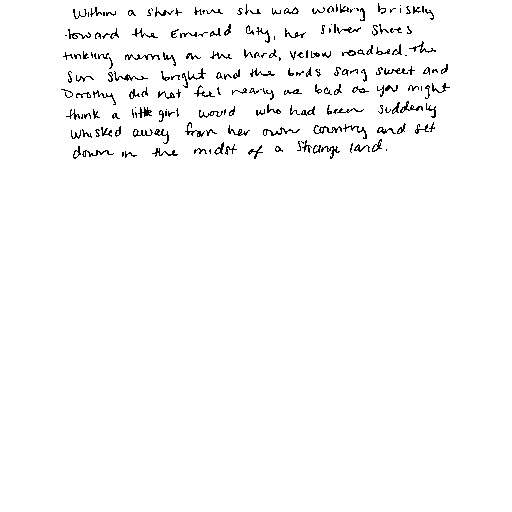 Within a short time she was walking briskly
toward the Emerald City, her Silver Shoes
tinkling merrily on the hard, yellow roadbed. The
sun shone bright and the birds sang sweet and
Dorothy did not feel nearly as bad as you might
think a little girl would who had been suddenly
whisked away from her own country and set
down in the midst of a strange land.